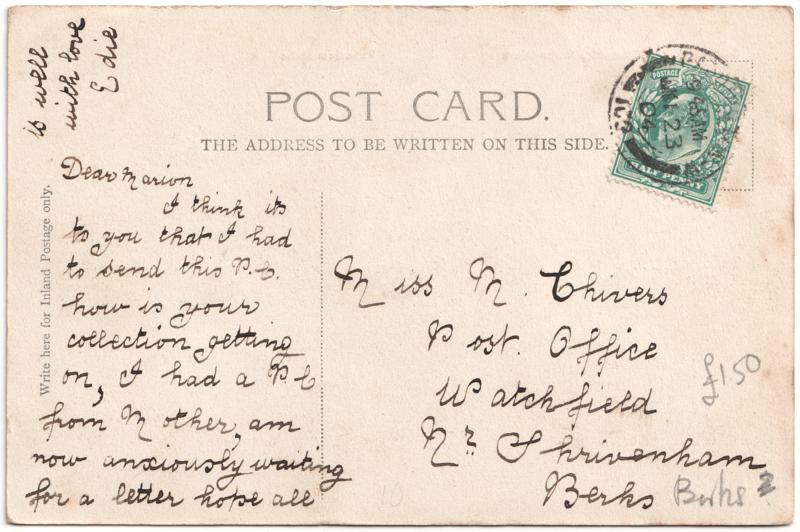 POST CARD.
THE ADDRESS TO BE WRITTEN ON THIS SIDE.
Write here for Inland Postage only.
Dear Marion
I think its
to you that I had
to send this P.C.
how is your
collection getting
on, I had a P.C
from Mother, am
now anxiously waiting
for a letter hope all
is well
with love
Edie
Miss M. Chivers
Post Office
Watchfield
Nr Shrivenham
Berks
Berks
£1.50
10
POSTAGE
HALF PENNY
23